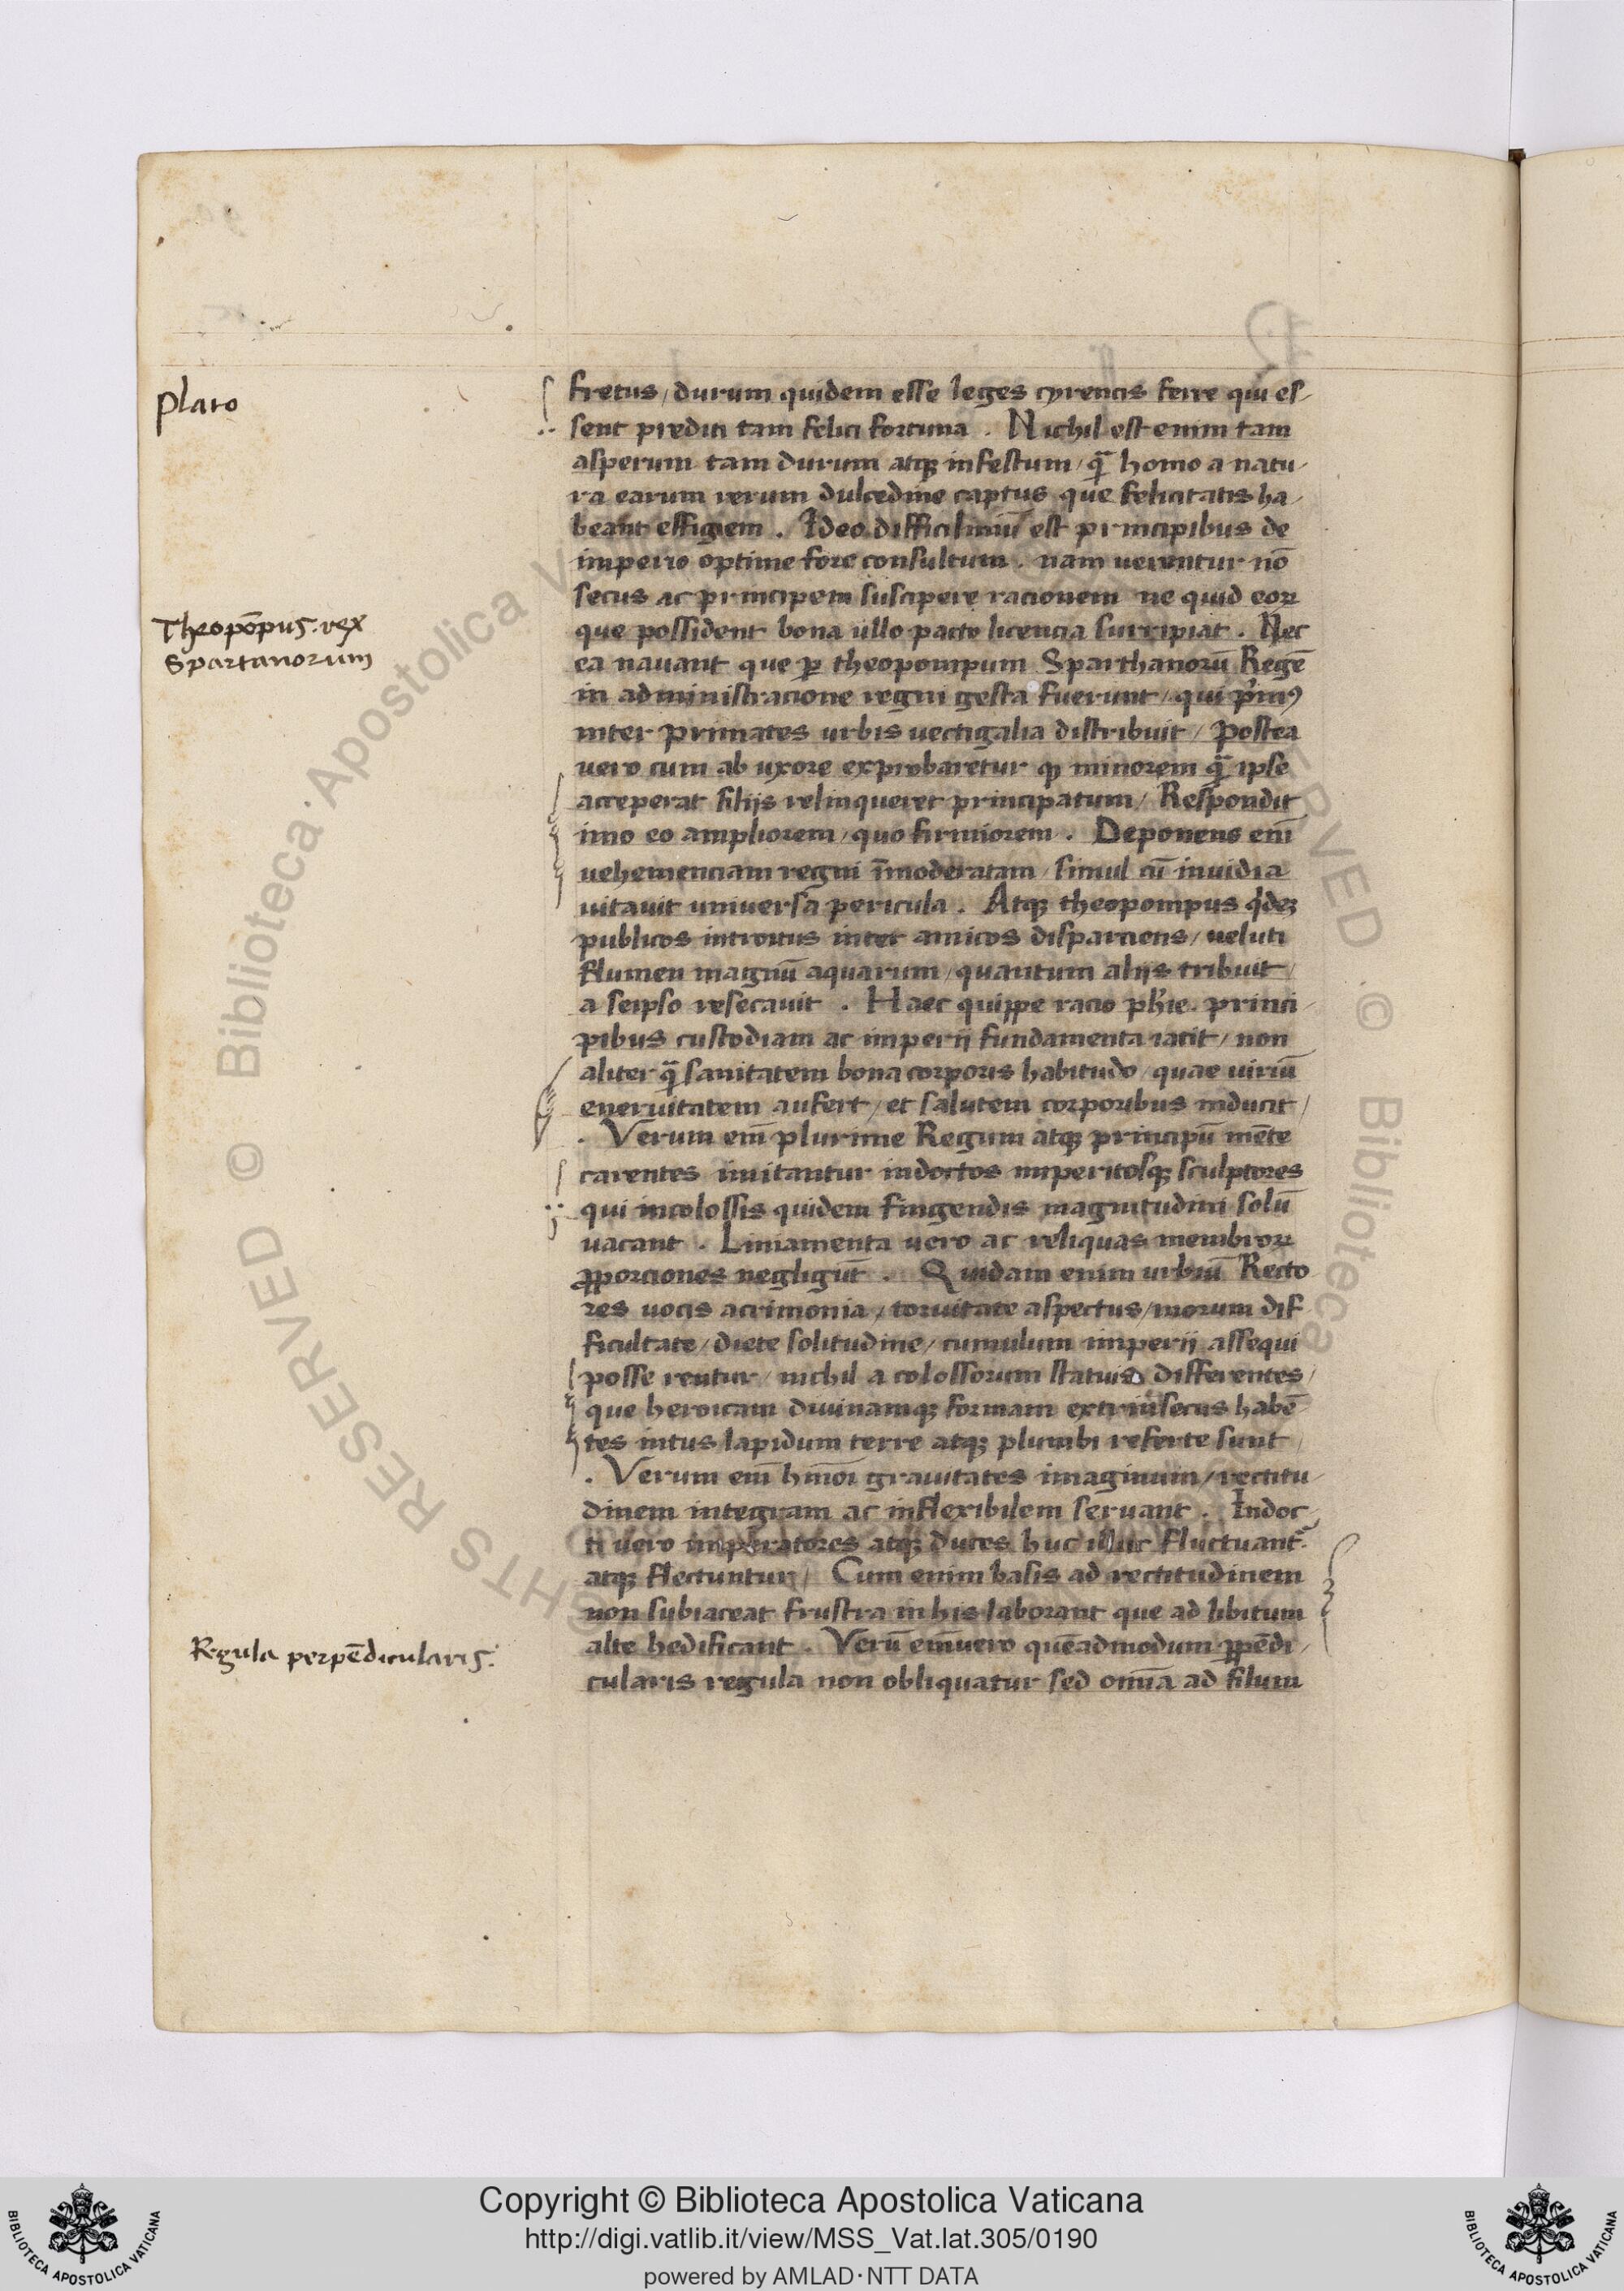 Plato
Theopōpus. rex
Spartanorum
Regula perpēdicularis.
fretus / durum quidem esse leges cyrencis ferre qui es-
sent prediti tam felici fortuna . Nichil est enim tam
asperum tam durum atqꝫ infestum / q̄ homo a natu-
ra earum rerum dulcedine captus que felicitatis ha-
beant effigiem . Ideo difficilimū est principibus de
imperio optime fore consultum . nam uerentur nō
secus ac principem suscipere racionem ne quid eoꝝ
que possident bona ullo pacto licencia surripiat . Nec
ea nauant que ꝑ theopompum Sparthanorū Regē
in administracione regni gesta fuerunt / qui
inter primates urbis uectigalia distribuit / Postea
uero cum ab uxore exprobaretur ꝙ minorem q̄ ipse
acceperat filijs relinqueret principatum / Respondit
imo eo ampliorem / quo firmiorem . Deponens enī
uehemenciam regni īmoderatam / simul cū inuidia
uitauit uniuersa pericula . Atqꝫ theopompus qdeꝫ
publicos introitus inter amicos disparciens / ueluti
flumen magnū aquarum / quantum alijs tribuit /
a seipso resecauit . Haec quippe racio phie . princi-
pibus custodiam ac imperij fundamenta iacit / non
aliter q̄ sanitatem bona corporis habitudo / quae uiriū
eneruitatem aufert / et salutem corporibus inducit /
. Verum enī plurime Regum atqꝫ principū mēte
carentes imitantur indoctos imperitosqꝫ sculptores
qui in colossis quidem fingendis magnitudini solū
uacant . Liniamenta uero ac reliquas membroꝝ
ꝓporciones negligūt . Quidam enim urbiū Recto
res uocis acrimonia / toruitate aspectus / morum dif
ficultate / diete solitudine / cumulum imperij assequi
posse rentur / nichil a colossorum statuis differentes /
que heroicam diuinamqꝫ formam extrinsecus habē-
tes intus lapidum terre atqꝫ plumbi referte sunt /
. Verum enī hmōi grauitates imaginum / rectitu-
dinem integram ac inflexibilem seruant . Indoc-
ti uero imperatores atqꝫ duces huc illuc fluctuant
atqꝫ flectuntur / Cum enim basis ad rectitudinem
non subiaceat frustra in his laborant que ad libitum
alte hedificant . Verū enīuero quēadmodum ꝑpēdi-
cularis regula non obliquatur sed omīa ad filum
© Biblioteca Apostolica Vaticana
RIGHTS RESERVED © Biblioteca
Copyright © Biblioteca Apostolica Vaticana
http://digi.vatlib.it/view/MSS_Vat.lat.305/0190
powered by AMLAD·NTT DATA
BIBLIOTECA APOSTOLICA VATICANA
BIBLIOTECA APOSTOLICA VATICANA